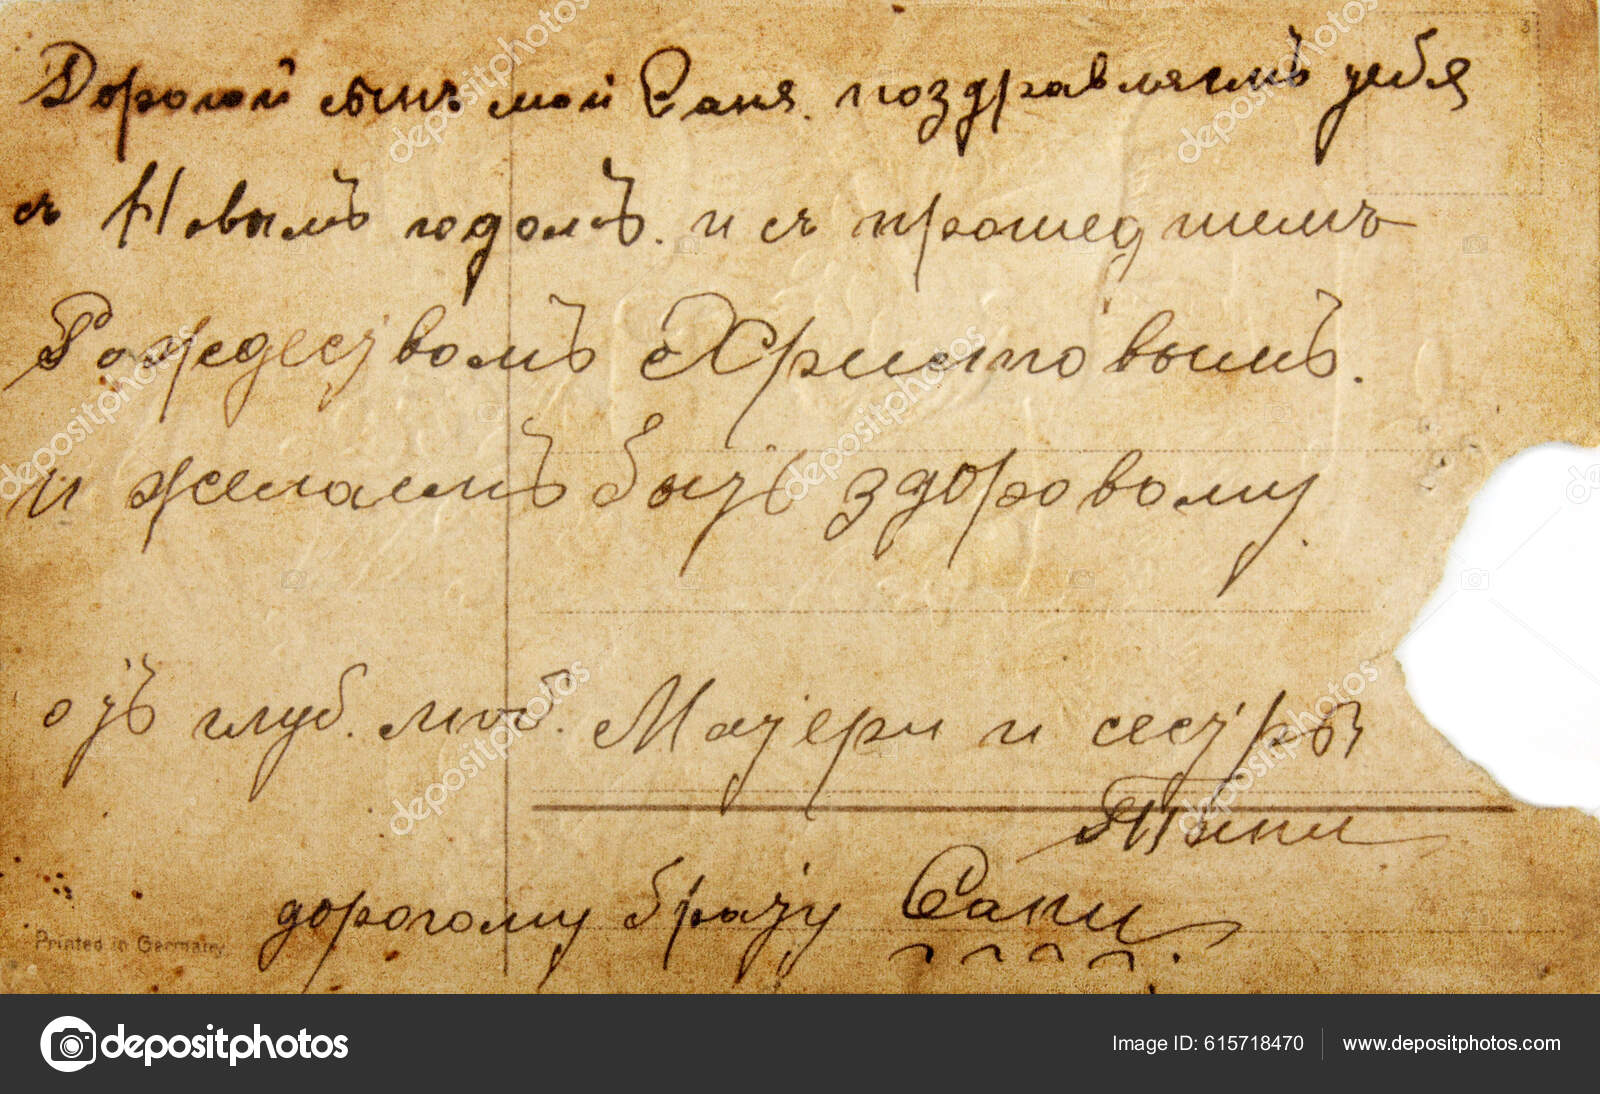 Дорогой сынъ мой Саня. поздравляемъ тебя
съ Новымъ годомъ. и съ прошедшемъ
Рождествомъ Христовымъ.
и желаемъ быть здоровому.
отъ глуб. люб. Матери и сестры
Тани
дорогому брату Сани.
Printed in Germany
depositphotos
Image ID: 615718470 www.depositphotos.com